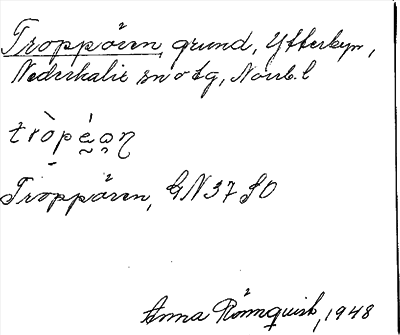 Troppören, grund, Ytterbyn,
Nederkalix sn o tg, Norrb. l
Troppören, GN 37 SO
Anna Rönnquist, 1948